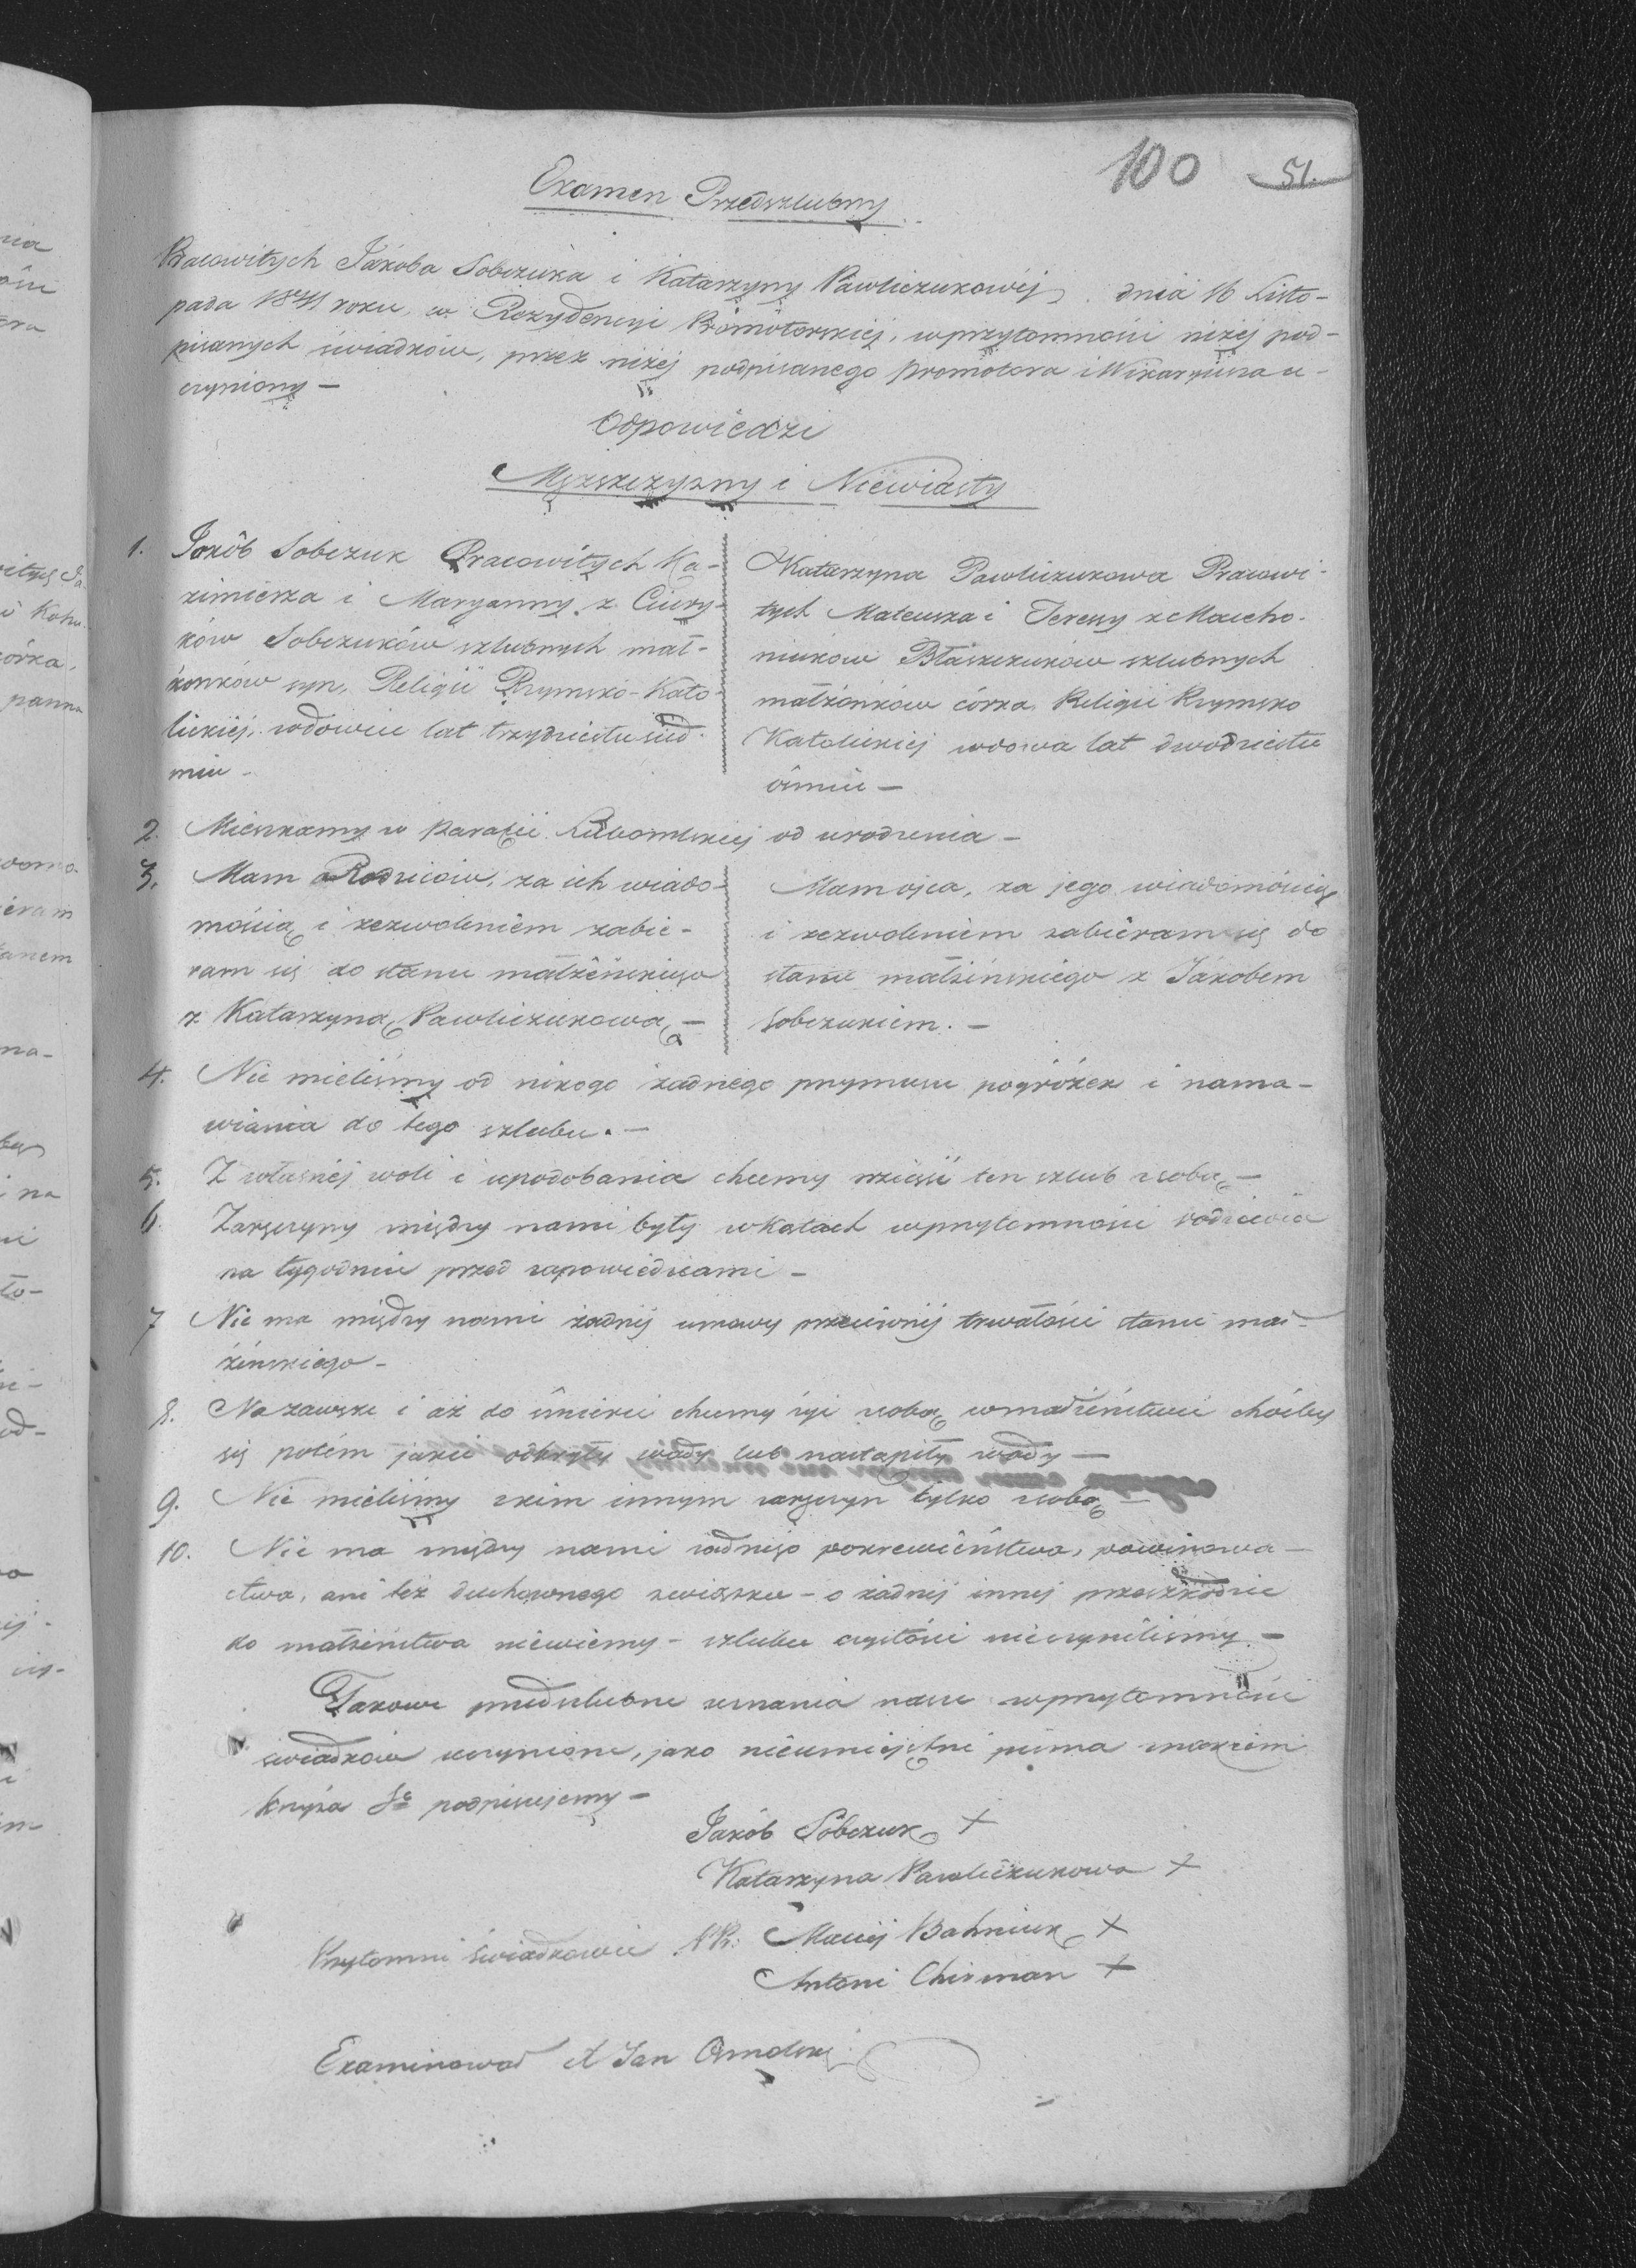 100 51.
Examen Przedszlubny
Pracowitych Jakóba Sobczuka i Katarzyny Pawliczukowéj dnia 16 Listo-
pada 1841 roku, w Rezydencyi Promotorskiej, w przytomności niżéj pod-
pisanych świadków, przez niżéj podpisanego Promotora i Wikaryusza u-
czyniony —
Odpowiedzi
Męzsczyzny i Niewiasty
1. Jakób Sobczuk Pracowitych Ka-
zimierza i Maryanny z
ków Sobczuków szlubnych mał-
żonków syn, Religii Rzymsko-Kato-
lickiéj, wdowiec lat trzydziestu sied-
miu -
Katarzyna Pawliczukowa Pracowi-
tych Mateusza i Teressy z Macho-
niuków Błaszczuków szlubnych
małżonków córka, Religii Rzymsko
Katolickiej wdowa lat dwudziestu
ośmiu —
2. Mieszkamy w Parafii od urodzenia —
3. Mam Rodziców, za ich wiado-
mością i zezwoleniem zabie-
ram się do stanu małżeńskiego
z Katarzyną Pawliczukową —
Mam ojca, za jego wiadomością
i zezwoleniem zabieram się do
stanu małżeńskiego z Jakóbem
Sobczukiem. —
4. Nie mieliśmy od nikogo żadnego przymusu pogróżek i nama-
wiania do tego szlubu. —
5. Z własnéj woli i upodobania chcemy wziąść ten szlub z sobą —
6. Zaręczyny między nami były w w przytomności rodziców
na tygodniu przed zapowiedziami —
7 Nie ma między nami żadnéj umowy przeciwnéj trwałości stanu mał-
żeńskiego -
8. Na zawsze i aż do śmierci chcemy żyć z sobą w małżeństwie choćby
się potém jakie odkryły wady lub nastąpiły wady —
9. Nie mieliśmy z kim innym zaręczyn tylko z sobą —
10. Nie ma między nami żadnego pokrewieństwa, powinowa-
ctwa, ani też duchownego związku - o żadnéj innej przeszkodzie
do małżeństwa niewiemy - szlubu czystości nieczyniliśmy —
Takowe przedszlubne zeznania nasze w przytomności
świadków uczynione, jako nieumiejętni pisma znakiem
krzyża Sgo podpisujemy —
Jakób Sobczuk +
Katarzyna Pawliczukowa +
Przytomni świadkowie Maciéj Bahniuk +
Antoni +
Examinował X Jan